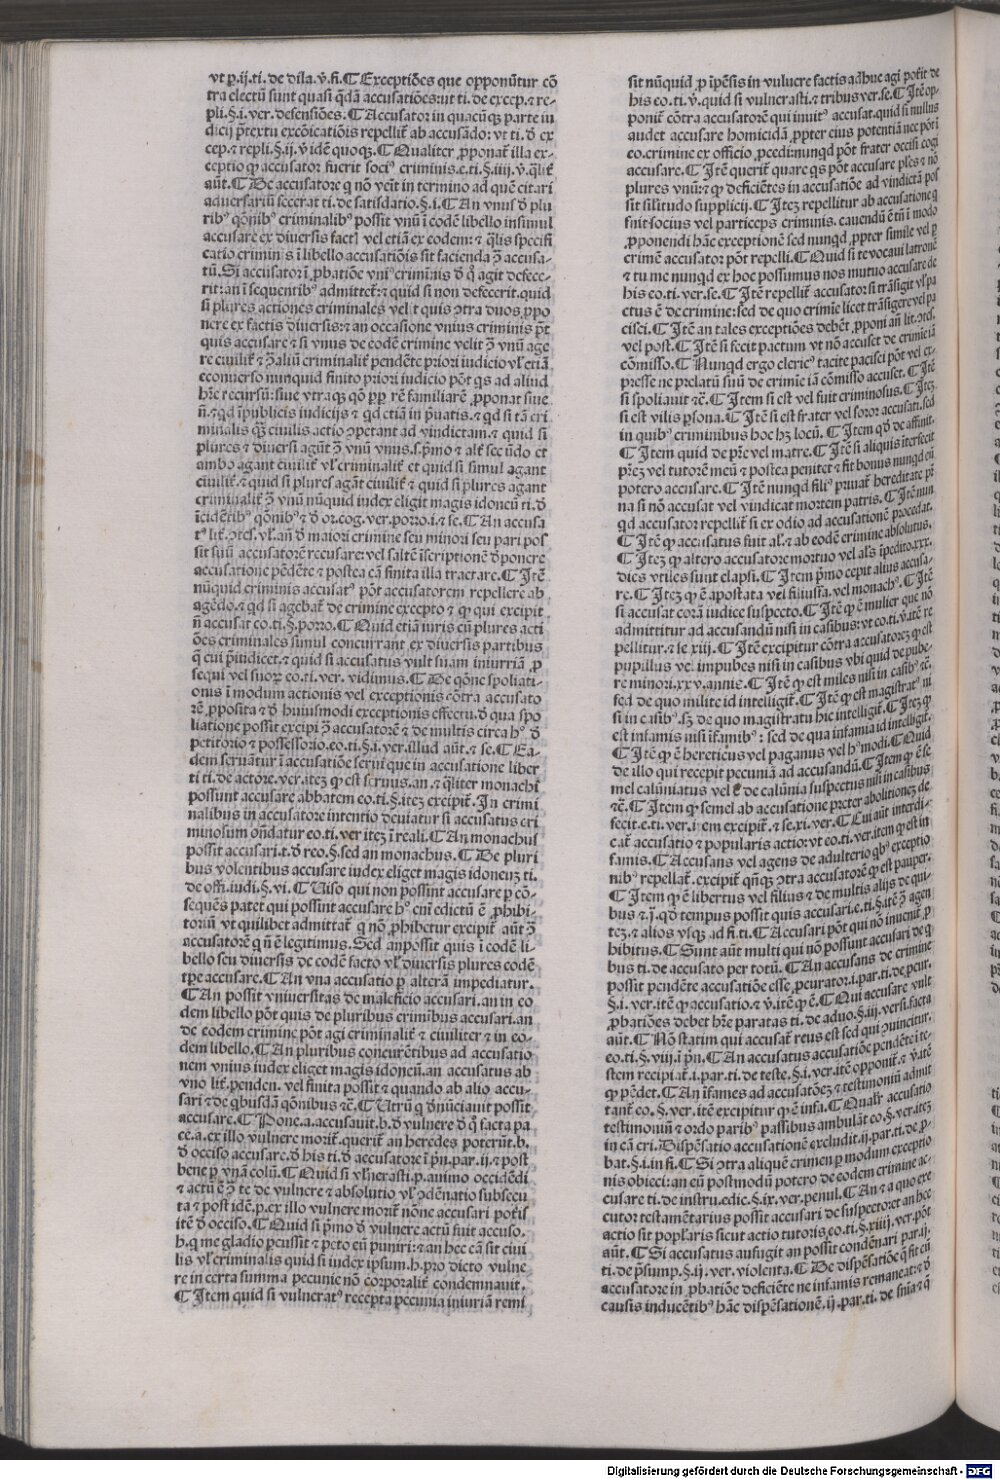 vt ꝑ.ij.ti. de dila.v̄.fi. ¶ Exceptiōes que opponūtur cō
tra electū sunt quasi q̄dā accusatiōes: vt ti. de excep. ⁊ re-
pli. §.i. ver. defensiōes. ¶ Accusator in quacūqꝫ parte iu
dicij p̄textu excōicatiōis repellit᷑ ab accusādo: vt ti. ď ex
cep. ⁊ repli. §.ij. v̄ idē quoqꝫ. ¶ Qualiter ꝓponat᷑ illa ex-
ceptio ꝙ accusator fuerit socꝰ criminis. e.ti. §.iiij. v̄. q̄lit᷑
aūt. ¶ De accusatore q nō veīt in termino ad quē citari
aduersariū fecerat ti. de satisdatio. §.i. ¶ An vnus ď plu
ribꝰ q̄onibꝰ criminalibꝰ possit vnū ī eodē libello insimul
accusare ex diuersis fact⁊ vel etiā ex eodem: ⁊ q̄lis specifi
catio criminis ī libello accusatiōis sit facienda ꝯ̄ accusa-
tū. Si accusator ī ꝓbatiōe vniꝰ criminis ď q̄ agit defece-
rit: an ī sequentibꝰ admittet᷑: ⁊ quid si non defecerit. quid
si plures actiones criminales velit quis ꝯtra duos ꝓpo
nere ex factis diuersis: ⁊ an occasione vnius criminis p̄t
quis accusare ⁊ si vnus de eodē crimine velit ꝯ̄ vnū age
re ciuilit᷑ ⁊ ꝯ̄ aliū criminalit᷑ pendēte priori iudicio vl᷑ etiā
econuerso nunquid finito priori iudicio pōt q̄s ad aliud
hr̄e recursū: siue vtraqꝫ q̄o ꝓp̄ rē familiarē ꝓponat siue
n̄. ⁊ q̄d ī publicis iudicijs ⁊ q̄d etiā in p̄uatis. ⁊ q̄d si tā cri
minalis q̄ꝫ ciuilis actio ꝯpetant ad vindictam. ⁊ quid si
plures ⁊ diuersi agūt ꝯ̄ vnū vnus. s. p̄mo ⁊ alt᷑ secūdo et
ambo agant ciuilit᷑ vl᷑ criminalit᷑ et quid si simul agant
ciuilit᷑. ⁊ quid si plures agāt ciuilit᷑ ⁊ quid si plures agant
criminalit᷑ ꝯ̄ vnū nūquid iudex eligit magis idoneū ti. ď
īcidētibꝰ q̄onibꝰ ⁊ ď or. cog. ver. porro. i. ⁊ se. ¶ An accusa
tꝰ lit᷑. ꝯtes. vl᷑. an̄ ď maiori crimine seu minori seu pari pos
sit suū accusatorē recusare: vel saltē īscriptionē ďponere
accusatione pēdēte ⁊ postea cā finita illa tractare. ¶ Itē
nūquid criminis accusatꝰ pōt accusatorem repellere ab
agēdo. ⁊ q̄d si agebat᷑ de crimine excepto ⁊ ꝙ qui excipit
n̄ accusat eo.ti. §. porro. ¶ Quid etiā iuris cū plures acti
ões criminales simul concurrant ex diuersis partibus
q̄ cui p̄iudicet. ⁊ quid si accusatus vult suam iniurriā ꝓ
sequi vel suoꝝ eo.ti. ver. vidimus. ¶ De q̄one spoliati-
onis ī modum actionis vel exceptionis cōtra accusato
rē ꝓposita ⁊ ď huiusmodi exceptionis effectu. ď qua spo
liatione possit excipi ꝯ̄ accusatorē ⁊ de multis circa hoꝰ ď
petitorio ⁊ possessorio. eo.ti. §.i. ver. illud aūt. ⁊ se. ¶ Ea-
dem seruātur ī accusatiōe serui que in accusatione liber
ti ti. de actore. ver. iteꝫ ꝙ est seruus. an. ⁊ q̄liter monachi
possunt accusare abbatem eo.ti. §. iteꝫ excipit᷑. In crimi
nalibus in accusatore intentio deuiatur si accusatus cri
minosum on̄datur eo.ti. ver iteꝫ ī reali. ¶ An monachus
possit accusari. t. ď reo. §. sed an monachus. ¶ De pluri
bus volentibus accusare iudex eliget magis idoneuꝫ ti.
de offi. iudi. §. vi. ¶ Uiso qui non possunt accusare ꝑ cō-
sequēs patet qui possint accusare hoꝰ eni edictū ē ꝓhibi-
toriū vt quilibet admittat᷑ q nō ꝓhibetur excipit᷑ aūt ꝯ̄
accusatorē q n̄ ē legitimus. Sed an possit quis ī eodē li-
bello seu diuersis de eodē facto vl᷑ diuersis plures eodē
tp̄e accusare. ¶ An vna accusatio ꝑ alterā impediatur.
¶ An possit vniuersitas de maleficio accusari. an in eo
dem libello pōt quis de pluribus crimibus accusari. an
de eodem crimine pōt agi criminalit᷑ ⁊ ciuiliter ⁊ in eo-
dem libello. ¶ An pluribus concurētibus ad accusatio
nem vnius iudex eliget magis idoneū. an accusatus ab
vno lit᷑. penden. vel finita possit ⁊ quando ab alio accu-
sari ⁊ de q̄busdā q̄onibus ⁊c̄. ¶ Utrū q ďnūciauit possit
accusare. ¶ Pone. a. accusauit. b. ď vulnere ď q̄ facta pa
ce. a. ex illo vulnere morit᷑. querit᷑ an heredes poterūt. b.
ď occiso accusare. ď his ti. ď accusatore ī p̄n. par. ij. ⁊ post
bene ꝑ vnā colū. ¶ Quid si vl᷑nerasti. p. animo occidēdi
⁊ actū ē ꝯ̄ te de vulnere ⁊ absolutio vl᷑ ꝯdēnatio subsecu
ta ⁊ post idē. p. ex illo vulnere morit᷑ nōne accusari pot᷑is
itē ď occiso. ¶ Quid si p̄mo ď vulnere actū fuit accuso.
b. q me gladio ꝑcussit ⁊ peto eū puniri: ⁊ an hec cā sit ciui
lis vl᷑ criminalis quid si iudex ipsum. b. pro dicto vulne
re in certa summa pecunie nō corporalit᷑ condemnauit.
¶ Item quid si vulneratꝰ recepta pecunia iniuriā remi
sit nūquid ꝓ īpēsis in vulnere factis adhuc agi pot᷑it de
his eo.ti. v̄. quid si vulnerasti. ⁊ tribus ver. se. ¶ Itē op-
ponit᷑ cōtra accusatorē qui inuitꝰ accusat. quid si nullus
audet accusare homicidā ꝓpter eius potentiā nec pōt ī
eo. crimine ex officio ꝓcedi: nunqd pōt frater occisi cogi
accusare. ¶ Itē querit᷑ quare q̄s pōt accusare pl᷑es ⁊ nō
plures vnū: ⁊ ꝙ deficiētes in accusatiōe ad vindictā pos
sit sil᷑itudo supplicij. ¶ Iteꝫ repellitur ab accusatione q
fuit socius vel particeps criminis. cauendū ē tn̄ ī modo
ꝓponendi hāc exceptionē sed nunqd ꝓpter simile vel ꝑ
crimē accusator pōt repelli. ¶ Quid si te vocaui latronē
⁊ tu me nunqd ex hoc possumus nos mutuo accusare de
his eo.ti. ver. se. ¶ Itē repellit᷑ accusator si trāsigit vl᷑ pa
ctus ē de crimine: sed de quo crimīe licet trāsigere vel pa
cisci. ¶ Itē an tales exceptiōes debēt ꝓponi an̄ lit. ꝯtes.
vel post. ¶ Itē si fecit pactum vt nō accuset de crimīe iā
cōmisso. ¶ Nunqd ergo clericꝰ tacite pacisci pōt vel ex-
presse ne prelatū suū de crimīe iā cōmisso accuset. ¶ Itē
si spoliauit ⁊c̄. ¶ Item si est vel fuit criminosus. ¶ Iteꝫ
si est vilis ꝑsona. ¶ Itē si est frater vel soror accusati. sed
in quibꝰ criminibus hoc hꝫ locū. ¶ Item qd̄ de affinit.
¶ Item quid de p̄re vel matre. ¶ Itē si aliquis īterfecit
pr̄eꝫ vel tutorē meū ⁊ postea penitet ⁊ fit bonus nunqd eū
potero accusare. ¶ Itē nunqd filiꝰ priuat᷑ hereditate pr̄
na si nō accusat vel vindicat mortem patris. ¶ Itē nun
qd accusator repellit᷑ si ex odio ad accusationē procedat.
¶ Itē ꝙ accusatus fuit al᷑. ⁊ ab eodē crimine absolutus.
¶ Iteꝫ ꝙ altero accusatore mortuo vel al᷑s īpedito. xxx.
dies vtiles sunt elapsi. ¶ Item p̄mo cepit alius accusa-
re. ¶ Iteꝫ ꝙ ē apostata vel fiiusfa. vel monachꝰ. ¶ Itē
si accusat corā iudice suspecto. ¶ Itē ꝙ ē mulier que nō
admittitur ad accusandū nisi in casibus: vt eo.ti. v̄. itē re
pellitur. ⁊ se xiij. ¶ Itē excipitur cōtra accusatoreꝫ ꝙ est
pupillus vel impubes nisi in casibus vbi quid de pube-
re minori. xxv. annis. ¶ Itē ꝙ est miles nisi in casibꝰ ⁊c̄.
sed de quo milite id intelligit᷑. ¶ Itē ꝙ est magistratꝰ ni
si in casibꝰ. sꝫ de quo magistratu hic intelligit᷑. ¶ Iteꝫ ꝙ
est infamis nisi ī famibꝰ: sed de qua infamia id intelligit.
¶ Itē ꝙ ē hereticus vel paganus vel hꝰmodi. ¶ Quid
de illo qui recepit pecuniā ad accusandū. ¶ Item ꝙ ē se
mel calūniatus vel ē de calūnia suspectus nisi in casibus
⁊c̄. ¶ Item ꝙ semel ab accusatione preter abolitioneꝫ de
fecit. e.ti. ver. item excipit᷑. ⁊ se. xi. ver. ¶ Cui aūt interdi-
cat᷑ accusatio ⁊ popularis actio: vt eo.ti. ver. item ꝙ est in
famis. ¶ Accusans vel agens de adulterio q̄bꝰ exceptio
nibꝰ repellat᷑. excipit᷑ qn̄qꝫ ꝯtra accusatorē ꝙ est pauper.
¶ Item ꝙ ē libertus vel filius ⁊ de multis alijs de qui-
bus ⁊ ī. q̄o tempus possit quis accusari. e.ti. §. itē ꝯ̄ agen
teꝫ. ⁊ alios vsqꝫ ad fi. ti. ¶ Accusari pōt qui nō inuenit᷑ ꝓ
hibitus. ¶ Sunt aūt multi qui nō possunt accusari de q
bus ti. de accusato per totū. ¶ An accusans de crimine
possit pendēte accusatiōe esse ꝓcurator. i. par. ti. de ꝓcur.
§.i. ver. itē ꝙ accusatio. ⁊ v̄. itē ꝙ ē. ¶ Qui accusare vult
ꝓbatiōes debet hr̄e paratas ti. de aduo. §. iij. versi. facta
aūt. ¶ Nō statim qui accusat᷑ reus est sed qui ꝯuincitur.
eo.ti. §. viij. ī p̄n. ¶ An accusatus accusatiōe pendēte ī te-
stem recipiat᷑. i. par. ti. de teste. §.i. ver. itē opponit᷑. ⁊ v̄. itē
ꝙ pēdet. ¶ An īfames ad accusatōeꝫ ⁊ testimoniū admit
tant᷑ eo. §. ver. itē excipitur ꝙ ē infa. ¶ Qualr̄ accusatio
testimoniū ⁊ ordo paribꝰ passibus ambulāt eo. §. ver. iteꝫ
in cā cri. Dispēsatio accusationē excludit. ij. par. ti. de. ꝓ-
bat. §.i. in fi. ¶ Si ꝯtra aliquē crimen ꝑ modum exceptio
nis obieci: an eū postmodū potero de eodem crimine ac-
cusare ti. de instru. edic. §. ix. ver. penul. ¶ An ⁊ a quo exe
cutor testamētarius possit accusari de suspecto: et an hec
actio sit popl᷑aris sicut actio tutoris eo.ti. §. xiiij. ver. pōt
aūt. ¶ Si accusatus aufugit an possit condēnari par. ij.
ti. de p̄sump. §. ij. ver. violenta. ¶ De dispēsatiōe q̄ fit cū
accusatore in ꝓbatiōe deficiēte ne infamis remaneat: ⁊ ď
causis inducētibꝰ hāc dispēsationē. ij. par. ti. de sn̄ia ⁊ q̄
Digitalisierung gefördert durch die Deutsche Forschungsgemeinschaft - DFG